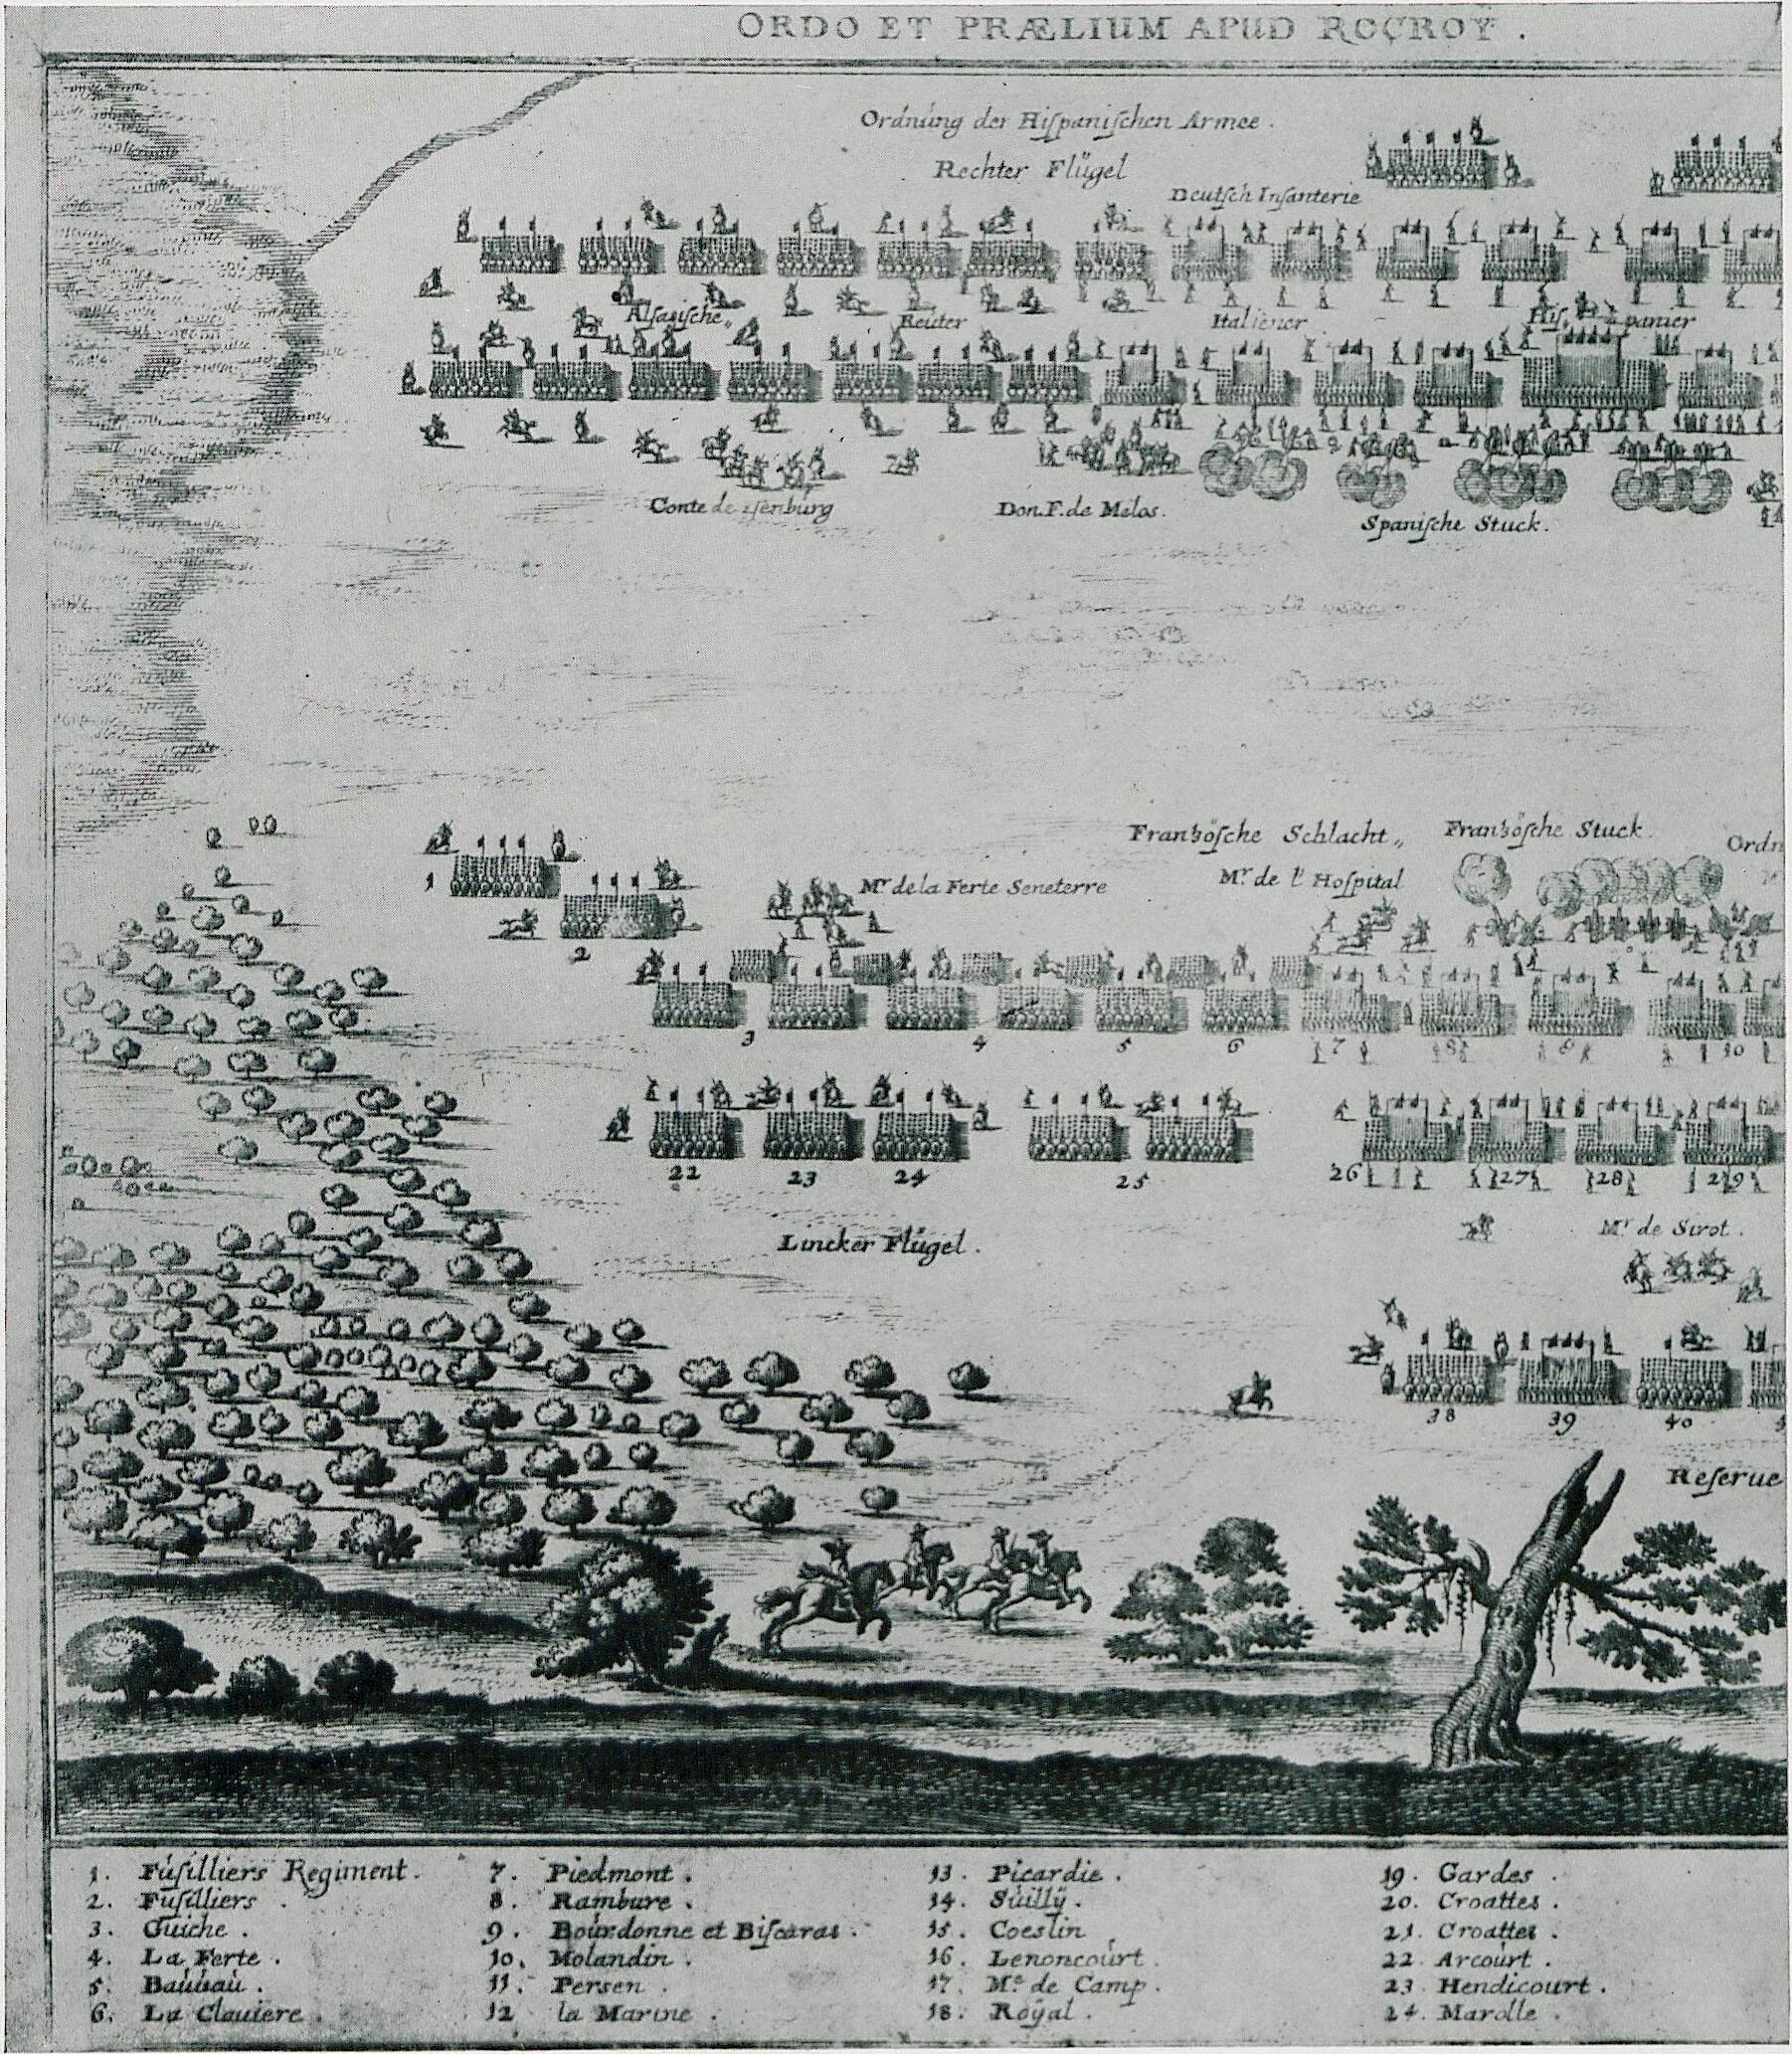 ORDO ET PRÆLIUM APUD ROCROY.
Ordnung der Hiſpaniſchen Armee.
Rechter Flügel
Deutſch Infanterie
Alſaſiſche„ Reuter Italiener Hiſ„panier
Conte de Iſenburg Don. F. de Melos.
Spaniſche Stuck.
Franköſche Schlacht„ Franköſche Stuck. Ordn
Mr. de la Ferte Seneterre Mr. de l'Hoſpital
1
2
3 4 5 6 7 8 9 10
22 23 24 25 26 27 28 29
Lincker Flügel. Mr de Sirot.
38 39 40
Reſerue
1. Fúſilliers Regiment.
2. Fúſilliers.
3. Guiche.
4. La Ferte.
5. Baúúaú.
6. La Clauiere.
7. Piedmont.
8. Rambure.
9. Boúrdonne et Biſcaras.
10. Molandin.
11. Perſen.
12 la Marine.
13. Picardie.
14. Súillÿ.
15. Coeslin
16. Lenoncoúrt.
17. Me. de Camp.
18. Roÿal.
19. Gardes.
20. Croattes.
21. Croattes.
22. Arcoúrt.
23. Hendicourt.
24. Marolle.